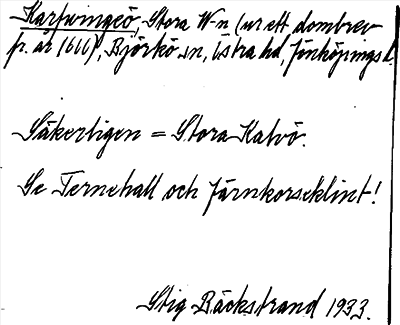 Karfwingeö, Stora W-n (ur ett dombrev
fr. år 1611), Björkö sn, Östra hd, Jönköpings l.
Säkerligen = Stora Kalvö.
Se Ternehall och Järnkorseklint!
Stig Bäckstrand 1933.